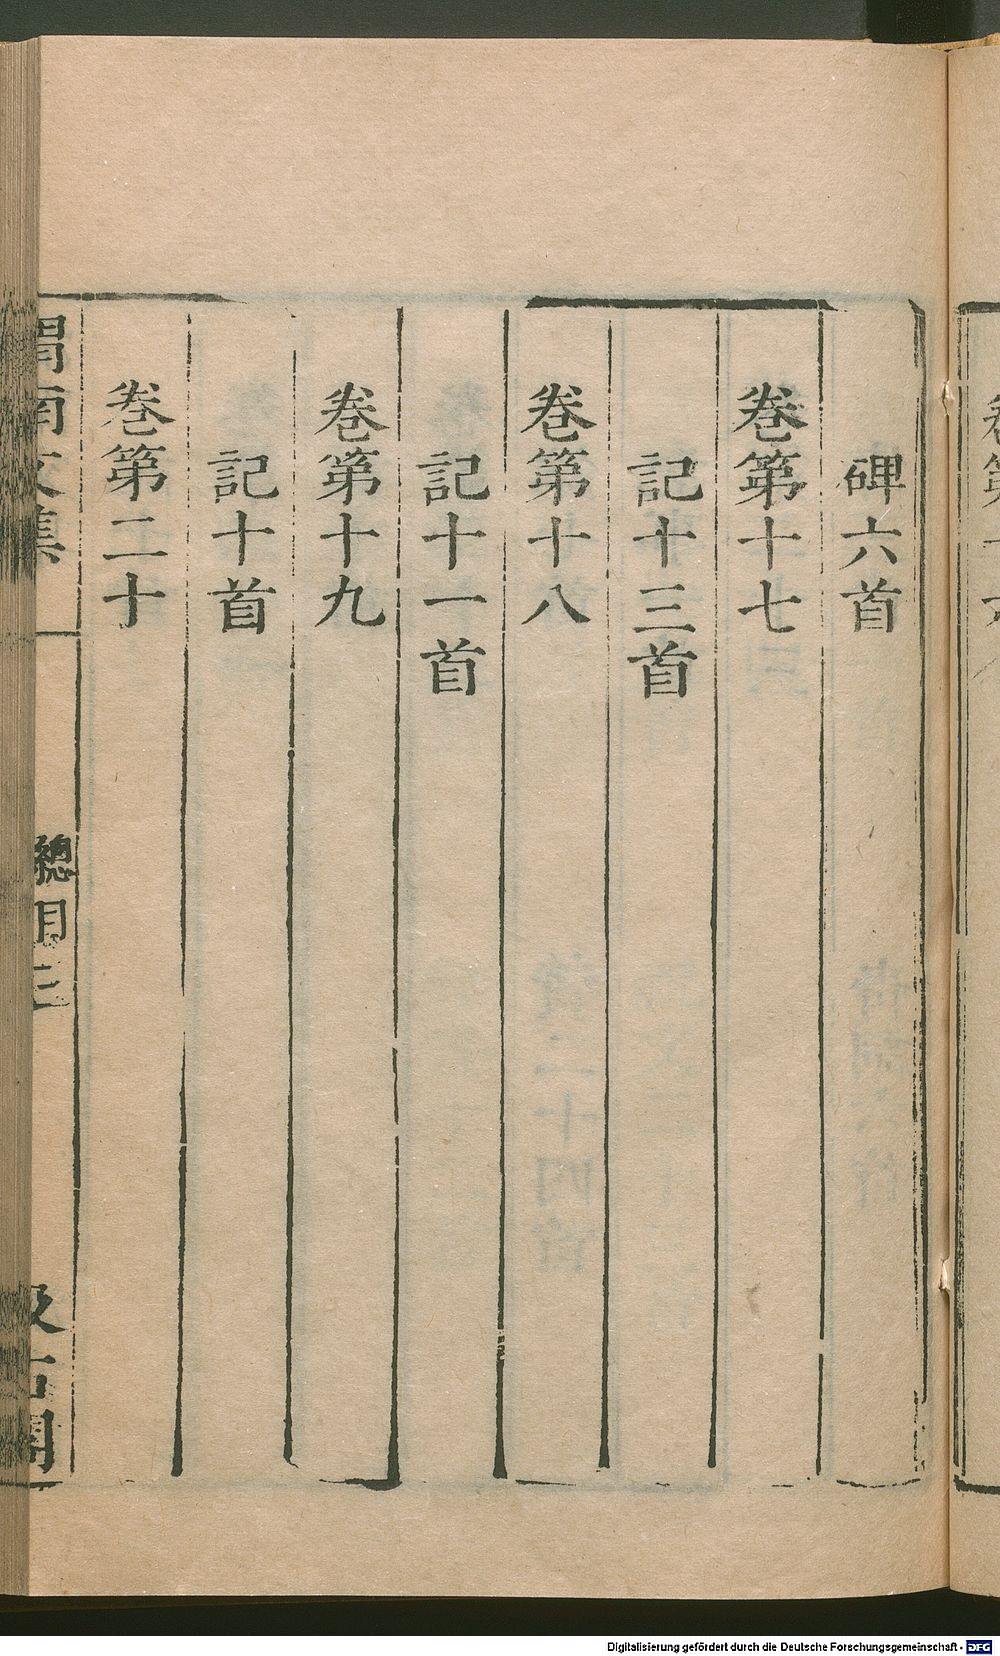 碑六首
卷第十七
記十三首
卷第十八
記十一首
卷第十九
記十首
卷第二十
渭南文集
總目三
汲古閣
Digitalisierung gefördert durch die Deutsche Forschungsgemeinschaft - DFG